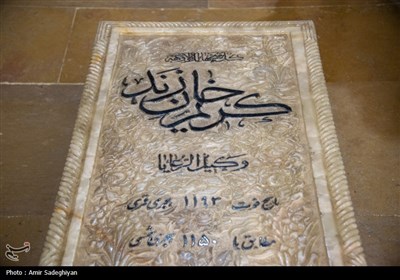 کریم خان زند
وکیل الرعایا
تاریخ فوت ۱۱۹۳ هجری قمری
مطابق با ۱۱۵۰ هجری شمسی
Photo : Amir Sadeghiyan